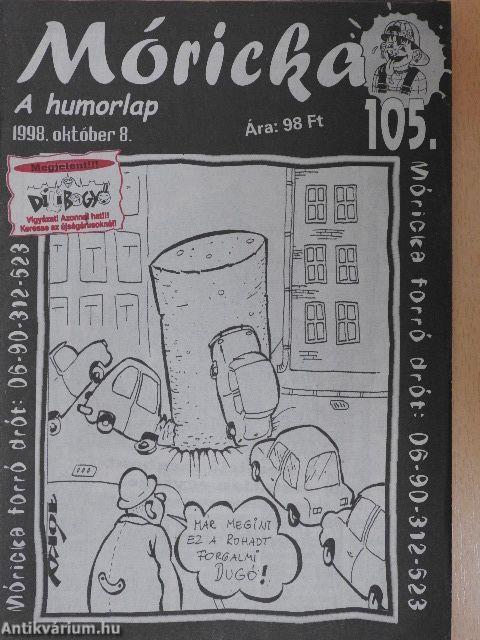 Móricka
A humorlap
1998. október 8.
Ára: 98 Ft
105.
Megjelent!!!
DILIBOGYÓ
Vigyázat! Azonnal hat!!!
Keresse az újságárusoknál!
Móricka forró drót: 06-90-312-523
Móricka forró drót: 06-90-312-523
MÁR MEGINT
EZ A ROHADT
FORGALMI
DUGÓ!
Antikvárium.hu